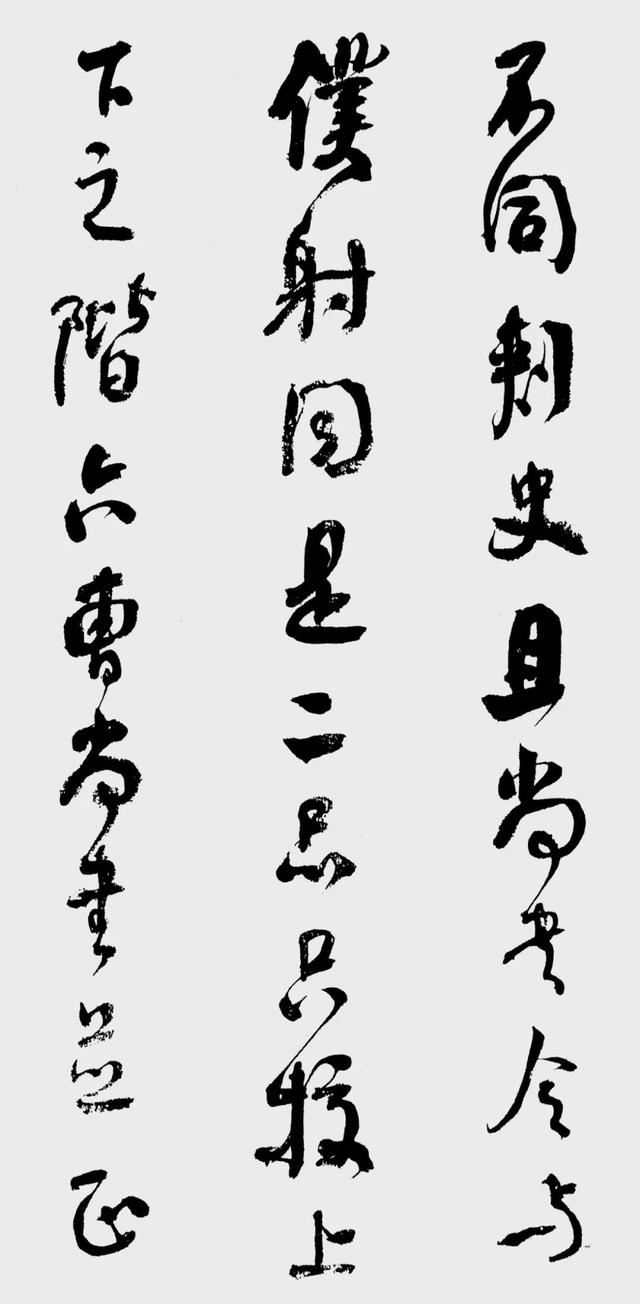 不同刺史且尚書令与
僕射同是二品只校上
下之階六曹尚書並正